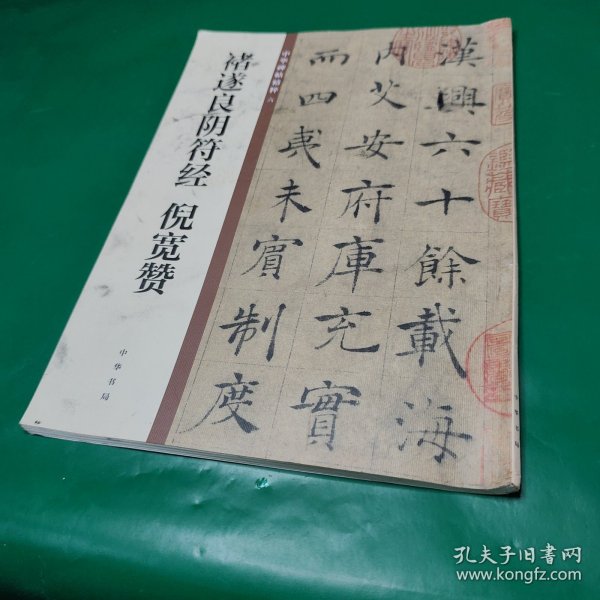 褚遂良阴符经 倪宽赞
中华碑帖精粹 六
中华书局
漢興六十餘載海
内艾安府庫充實
而四夷未賓制度
中华书局
孔夫子旧书网
www.kongfz.com